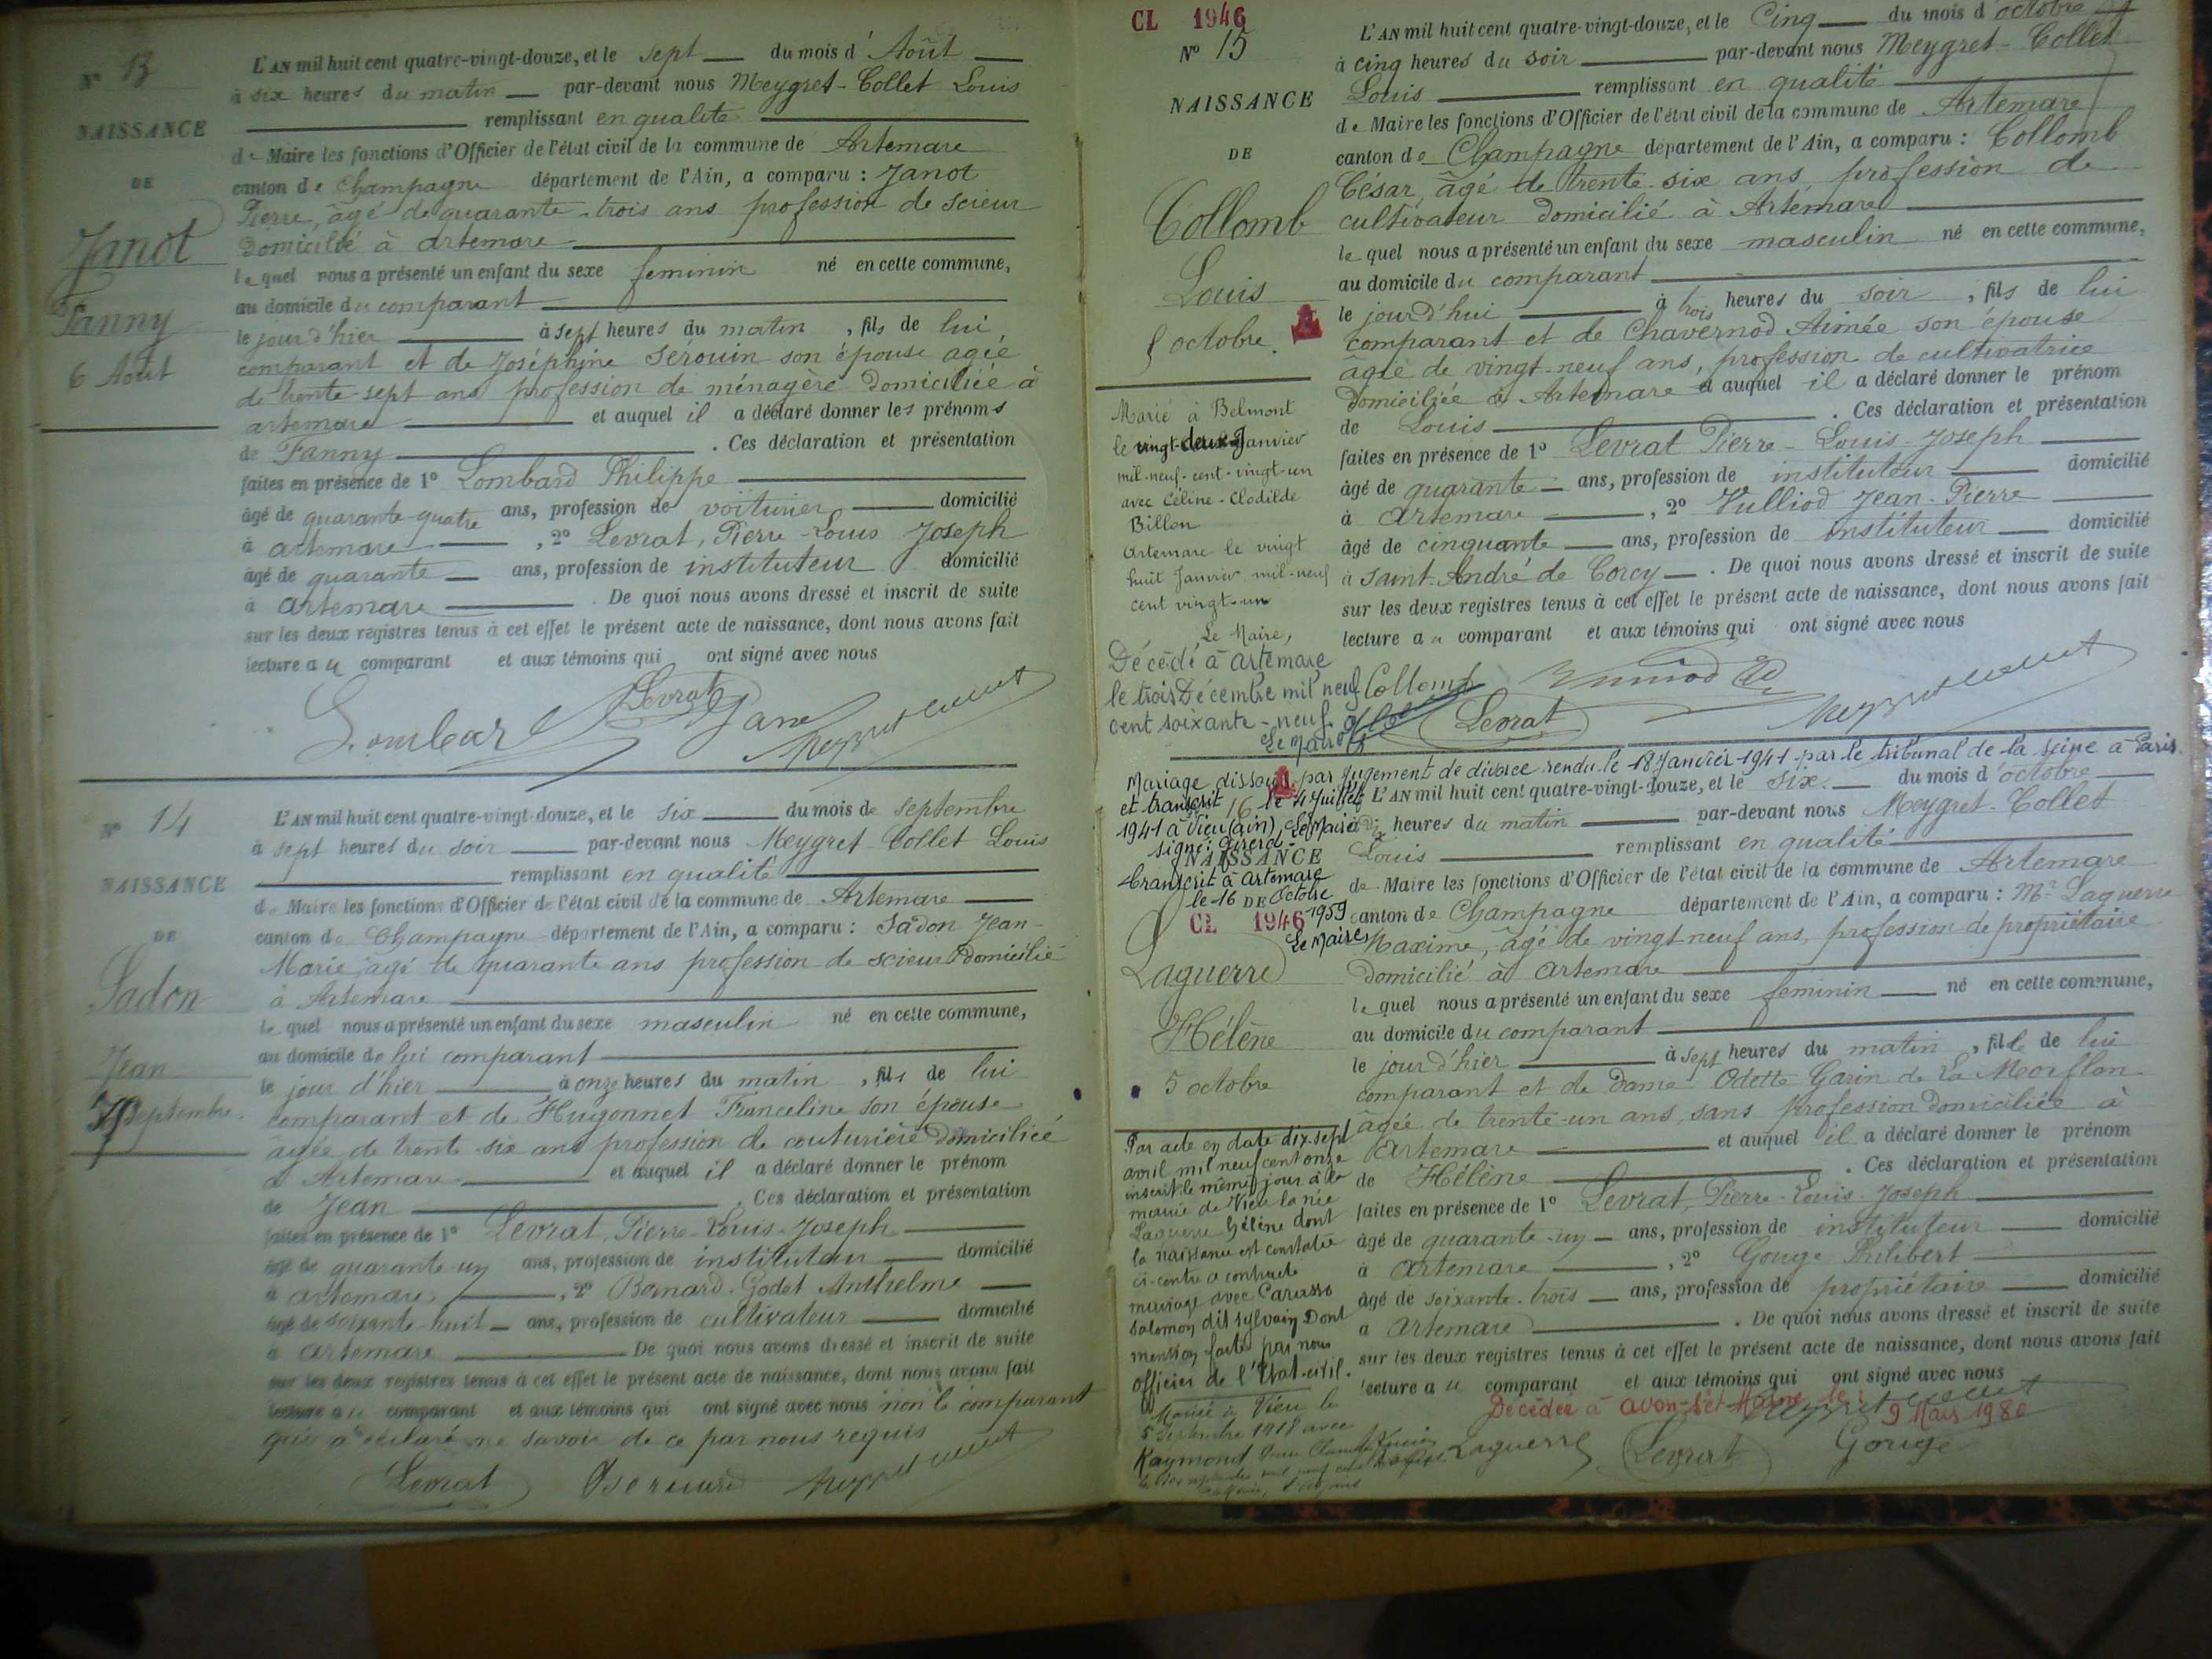 Nº 13
NAISSANCE
DE
Janot
Fanny
6 Août
L'AN mil huit cent quatre-vingt-douze, et le sept du mois d'Août
à six heures du matin par-devant nous Meygret-Collet Louis
remplissant en qualité
de Maire les fonctions d'Officier de l'état civil de la commune de Artemare
canton de Champagne département de l'Ain, a comparu : Janot
Pierre, âgé de quarante-trois ans profession de scieur
domicilié à artemare
lequel nous a présenté un enfant du sexe feminin né en cette commune,
au domicile du comparant
le jour d'hier à sept heures du matin, fils de lui
comparant et de Joséphine Sérouin son épouse agée
de trente-sept ans profession de ménagère domiciliée à
artemare et auquel il a déclaré donner les prénoms
de Fanny. Ces déclaration et présentation
faites en présence de 1º Lombard Philippe
âgé de quarante-quatre ans, profession de voiturier domicilié
à artemare, 2º Levrat, Pierre-Louis Joseph
âgé de quarante ans, profession de instituteur domicilié
à artemare. De quoi nous avons dressé et inscrit de suite
sur les deux registres tenus à cet effet le présent acte de naissance, dont nous avons fait
lecture au comparant et aux témoins qui ont signé avec nous
Levrat
Lombard Janot
Nº 14
NAISSANCE
DE
Sadon
Jean
7 Septembre
L'AN mil huit cent quatre-vingt-douze, et le six du mois de septembre
à sept heures du soir par-devant nous Meygret-Collet Louis
remplissant en qualité
de Maire les fonctions d'Officier de l'état civil de la commune de Artemare
canton de Champagne département de l'Ain, a comparu : Sadon Jean-
Marie, âgé de quarante ans profession de scieur domicilié
à Artemare
lequel nous a présenté un enfant du sexe masculin né en cette commune,
au domicile de lui comparant
le jour d'hier à onze heures du matin, fils de lui
comparant et de Hugonnet Franceline son épouse
agée de trente-six ans profession de couturière domiciliée
à Artemare et auquel il a déclaré donner le prénom
de Jean. Ces déclaration et présentation
faites en présence de 1º Levrat, Pierre-Louis-Joseph
âgé de quarante-un ans, profession de instituteur domicilié
à artemare, 2º Bernard-Godet Anthelme
âgé de soixante-huit ans, profession de cultivateur domicilié
à artemare De quoi nous avons dressé et inscrit de suite
sur les deux registres tenus à cet effet le présent acte de naissance, dont nous avons fait
lecture au comparant et aux témoins qui ont signé avec nous non le comparant
qui a déclaré ne savoir de ce par nous requis
Levrat Bernard
CL 1946
Nº 15
NAISSANCE
DE
Collomb
Louis
5 octobre
Marié à Belmont
le vingt-deux Janvier
mil-neuf-cent-vingt-un
avec Céline-Clodilde
Billon
Artemare le vingt
huit Janvier mil-neuf
cent vingt-un
Le Maire,
Décédé à artemare
le trois Décembre mil neuf
cent soixante-neuf.
Le Maire
L'AN mil huit cent quatre-vingt-douze, et le Cinq du mois d'octobre
à cinq heures du soir par-devant nous Meygret-Collet
Louis remplissant en qualité
de Maire les fonctions d'Officier de l'état civil de la commune de Artemare
canton de Champagne département de l'Ain, a comparu : Collomb
César, âgé de trente-six ans, profession de
cultivateur domicilié à Artemare
lequel nous a présenté un enfant du sexe masculin né en cette commune,
au domicile du comparant
le jour d'hui à trois heures du soir, fils de lui
comparant et de Chavernod Aimée son épouse
âgée de vingt-neuf ans, profession de cultivatrice
domiciliée à Artemare et auquel il a déclaré donner le prénom
de Louis. Ces déclaration et présentation
faites en présence de 1º Levrat Pierre-Louis-Joseph
âgé de quarante ans, profession de instituteur domicilié
à artemare, 2º Vulliod Jean-Pierre
âgé de cinquante ans, profession de instituteur domicilié
à saint-André de Corcy. De quoi nous avons dressé et inscrit de suite
sur les deux registres tenus à cet effet le présent acte de naissance, dont nous avons fait
lecture au comparant et aux témoins qui ont signé avec nous
Collomb Vulliod
Levrat
Mariage dissous par jugement de divorce rendu le 18 Janvier 1941 par le tribunal de la seine à Paris
et transcrit le 4 Juillet
1941 à Vieu (ain), Le Maire
signé: Girerd
transcrit à artemare
le 16 Octobre
1959
Le Maire
16
NAISSANCE
DE
CL 1946
Laguerre
Hélène
5 octobre
Par acte en date dix-sept
avril mil neuf cent onze
inscrit le même jour à la
mairie de Vieu la née
Laguerre Hélène dont
la naissance est constatée
ci-contre a contracté
mariage avec Carasso
Salomon dit Sylvain Dont
mention faite par nous
officier de l'Etat-civil.
Mariée à Vieu le
5 Septembre 1918 avec
Raymond
L'AN mil huit cent quatre-vingt-douze, et le six du mois d'octobre
à dix heures du matin par-devant nous Meygret-Collet
Louis remplissant en qualité
de Maire les fonctions d'Officier de l'état civil de la commune de Artemare
canton de Champagne département de l'Ain, a comparu : Mr Laguerre
Maxime, âgé de vingt-neuf ans, profession de propriétaire
domicilié à artemare
lequel nous a présenté un enfant du sexe feminin né en cette commune,
au domicile du comparant
le jour d'hier à sept heures du matin, fille de lui
comparant et de Dame Odette Garin de La Morflan
âgée de trente-un ans, sans profession domiciliée à
artemare et auquel il a déclaré donner le prénom
de Hélène. Ces déclaration et présentation
faites en présence de 1º Levrat, Pierre-Louis-Joseph
âgé de quarante-un ans, profession de instituteur domicilié
à artemare, 2º Gouge Philibert
âgé de soixante-trois ans, profession de propriétaire domicilié
à artemare. De quoi nous avons dressé et inscrit de suite
sur les deux registres tenus à cet effet le présent acte de naissance, dont nous avons fait
lecture au comparant et aux témoins qui ont signé avec nous
Décédée à avon-Set Marne le : 9 Mars 1980
Laguerre Levrat Gouge